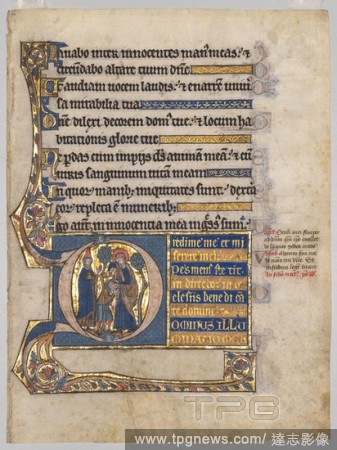 Lavabo inter innocentes manus meas: et
circundabo altare tuum dñe
Ut audiam uocem laudis: et enarrē uniuersa
mirabilia tua
Dñe dilexi decorem dom' tue: et locum ha
bitationis glorie tue
Ne perdas cum impiis ds animam meā: et cū
uiris sanguinum uitam meam
In quor manib; iniquitates sunt: dextera
eor repleta ē munerib;
Ego aut in innocentia mea ingssus sum:
redime me et mi
serere mei
Pes meus stetit
in directo: in e
clesiis benedica
te domine
OMINUS ILLU
MINATIO MEA
TPG
www.tpgnews.com/ 達志影像